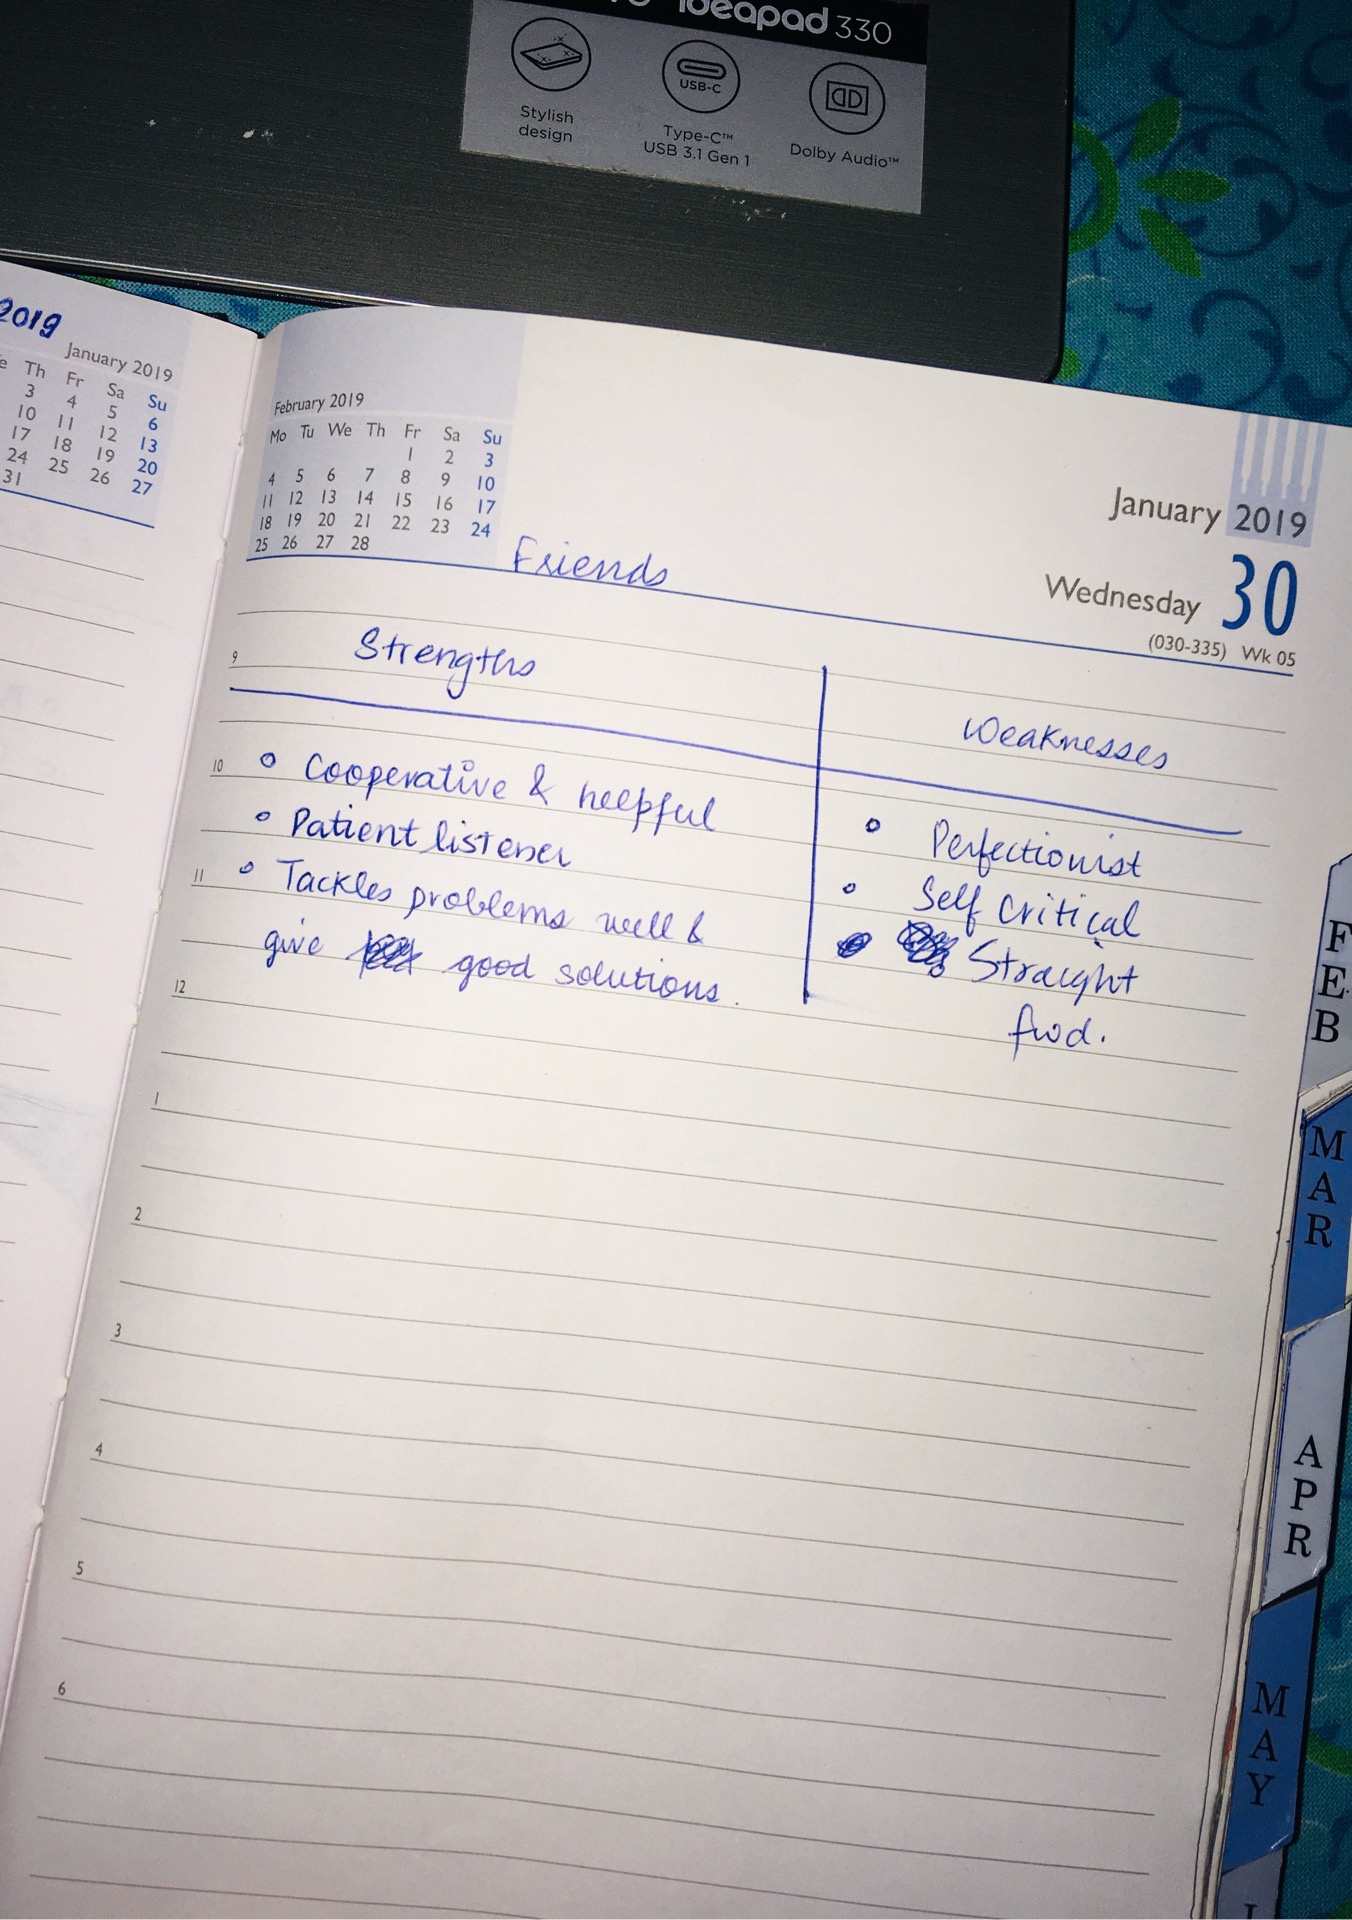 ideapad 330
Stylish
design
USB-C
Type-C™
USB 3.1 Gen 1
Dolby Audio™
2019
January 2019
Th Fr Sa Su
3 4 5 6
10 11 12 13
17 18 19 20
24 25 26 27
31
February 2019
Mo Tu We Th Fr Sa Su
1 2 3
4 5 6 7 8 9 10
11 12 13 14 15 16 17
18 19 20 21 22 23 24
25 26 27 28
January 2019
Wednesday 30
(030-335) Wk 05
Friends
9 Strengths
Weaknesses
10 Cooperative & helpful
Patient listener
11 Tackles problems well &
give good solutions.
Perfectionist
Self Critical
Straight
fwd.
12
1
2
3
4
5
6
FEB
MAR
APR
MAY